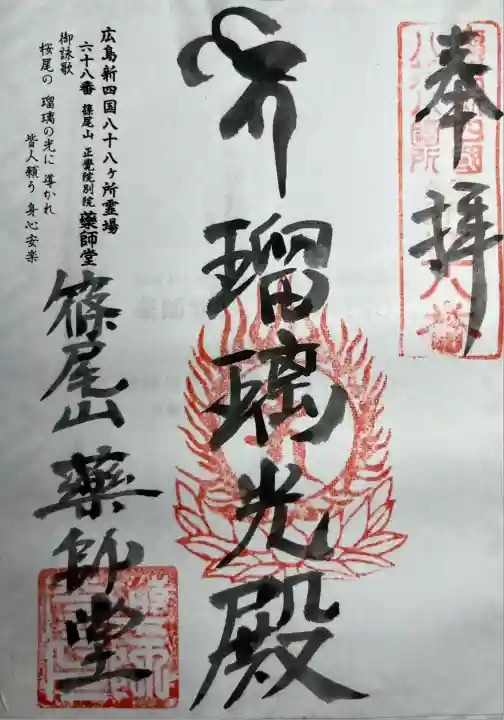 奉拝
瑠璃光殿
広島新四国八十八ヶ所霊場
六十八番 篠尾山 正覺院別院 藥師堂
御詠歌
桜尾の 瑠璃の光に 導かれ
皆人願う 身心安楽
篠尾山 藥師堂